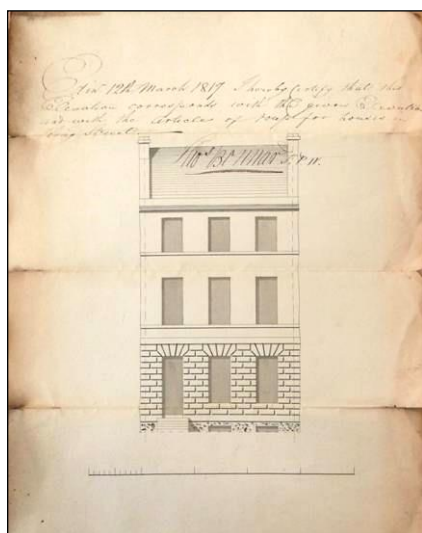 Edinr 12th March 1817 I hereby Certify that this
Elevation corresponds with the given Elevation
and with the Articles of roup for houses in
Young Street
Thos Bonnar S.P.W.